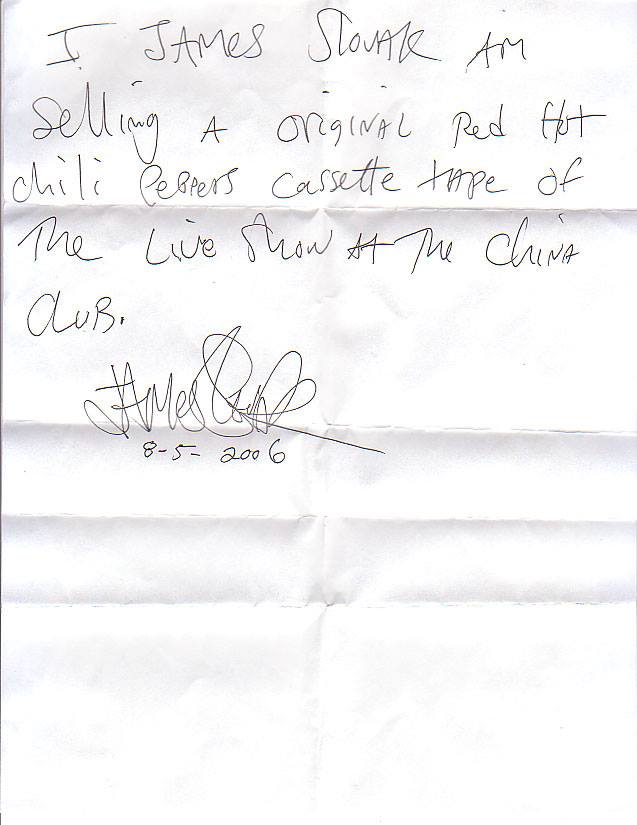 I JAMES SLOVAK AM
Selling A ORIGINAL Red Hot
chili PePPeRS Cassette tAPe of
The Live Show At The ChiNA
CluB.
JAMES Slovak
8-5-2006